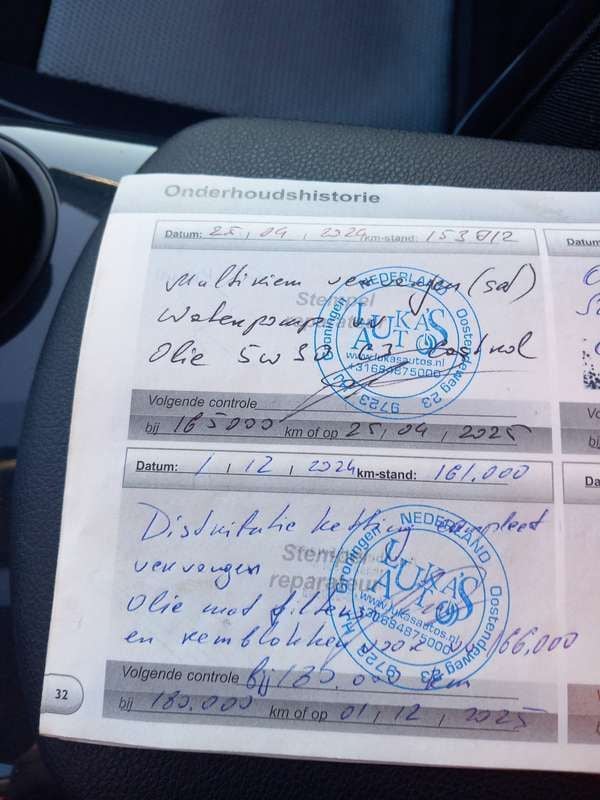 Onderhoudshistorie
Datum: 25 , 04 , 2024 km-stand: 153 812
Multiriem vervangen (set)
Waterpomp
Olie 5W30 C3 Castrol
Stempel
reparateur
NEDERLAND
Groningen
Oostendeweg 23
9723
LUKAS
AUTOS
www.lukasautos.nl
+31684875000
Volgende controle
bij 165000 km of op 25 , 04 , 2025
Datum: 1 , 12 , 2024 km-stand: 161.000
Distributie ketting compleet
vervangen
Olie met filter
en remblokken voor 166,000
Stempel
reparateur
NEDERLAND
Groningen
Oostendeweg 23
9723 HH
LUKAS
AUTOS
www.lukasautos.nl
+31684875000
Volgende controle bij 180.000 km
bij 180.000 km of op 01 , 12 , 2025
32
Datum
Vo
bij
Da